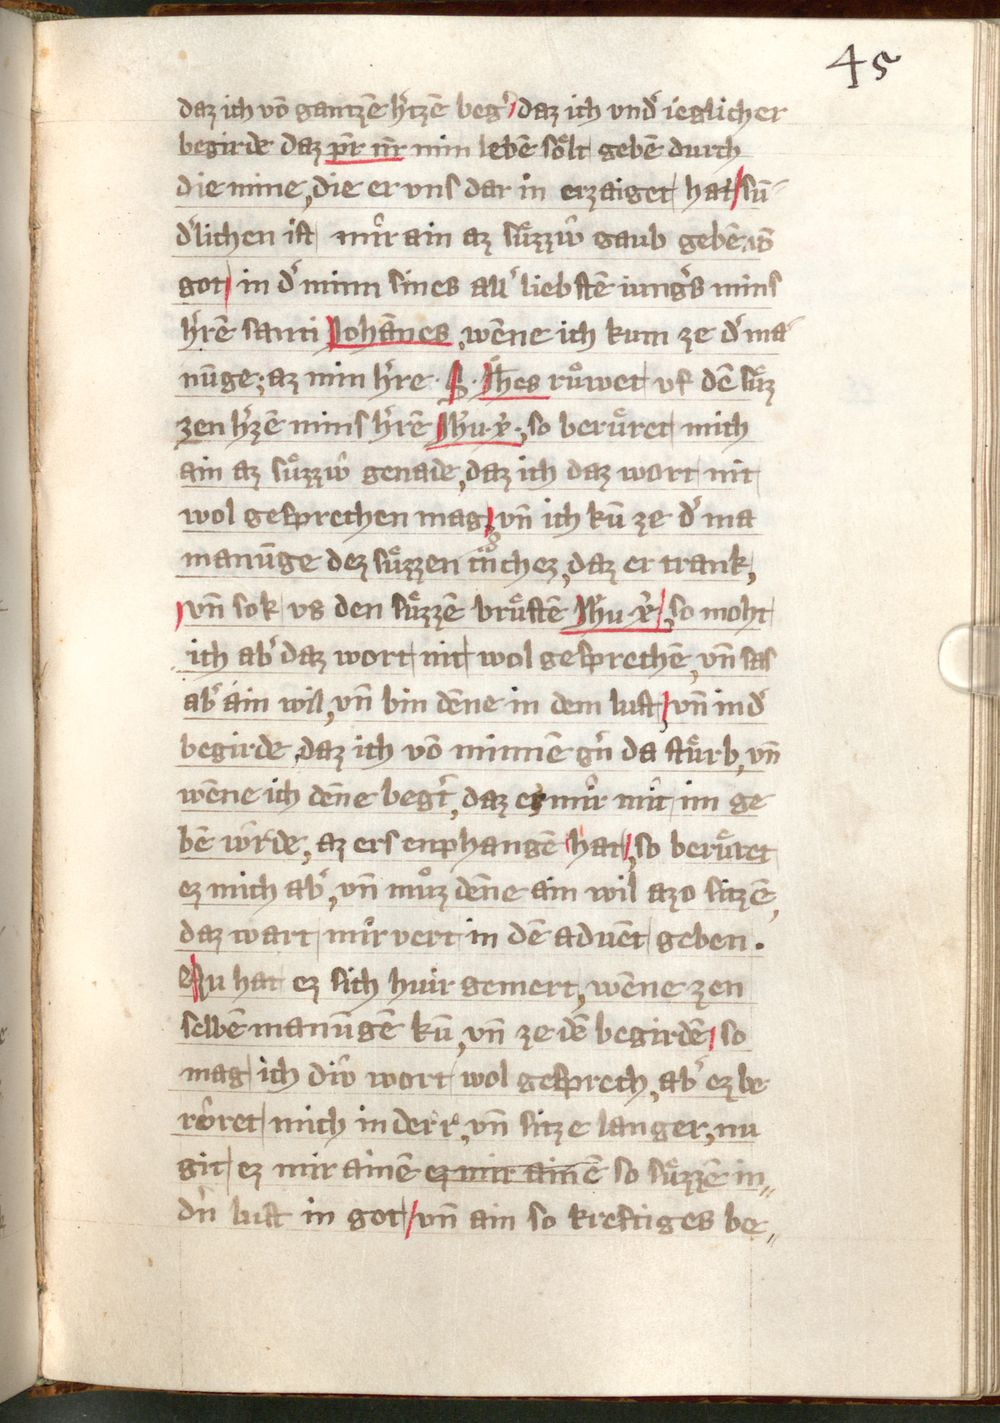 45
daz ich vō gantzē h'tzē beg' daz ich vnd' ieglicher
begirde daz pr̄ nr̄ min lebē soͤlt gebē durch
die mine, die er vns dar in erzaiget hat / sū
d'lichen ist mir ain az suͤzziv gaub gebē vō
got / in d' minn sines all' liebstē iung's mins
h'rē santi Johānes, wēne ich kum ze d' ma
nūge, az min h're · S · Jo̅hes ruͦwet vf dē suͤz
zen h'zē mins h'rē Jh'u x', so beruͤret mich
ain az suͤzziv genade, daz ich daz wort nit
wol gesprechen mag, vn̄ ich kū ze d' ma
manūge dez suͤzzen tches, daz er trank,
vn̄ sok vs den suͤzzē bruͤstē Jh'u x', so moht
ich ab' daz wort nit wol gesprechē, vn̄ sas
ab' ain wil, vn̄ bin dēne in dem lust, vn̄ in d'
begirde, daz ich vō minnē g'n da stuͤrb, vn̄
wēne ich dēne beg'r, daz er mir mit im ge
bē wirde, az ers enphangē hat, so beruͤret
ez mich ab', vn̄ muͦz dēne ain wil azo sitzē,
daz wart mir vert in dē aduēt geben.
Nu hat ez sich huir gemert, wēne zen
selbē manūgē kū, vn̄ ze dē begirdē / so
mag ich div wort wol gesprech, ab' ez be
roͤret mich in der r', vn̄ sitze langer, nu
git ez mir ainē ez mir ainē so suͤzzē in„
d'n lust in got / vn̄ ain so kreftiges be„